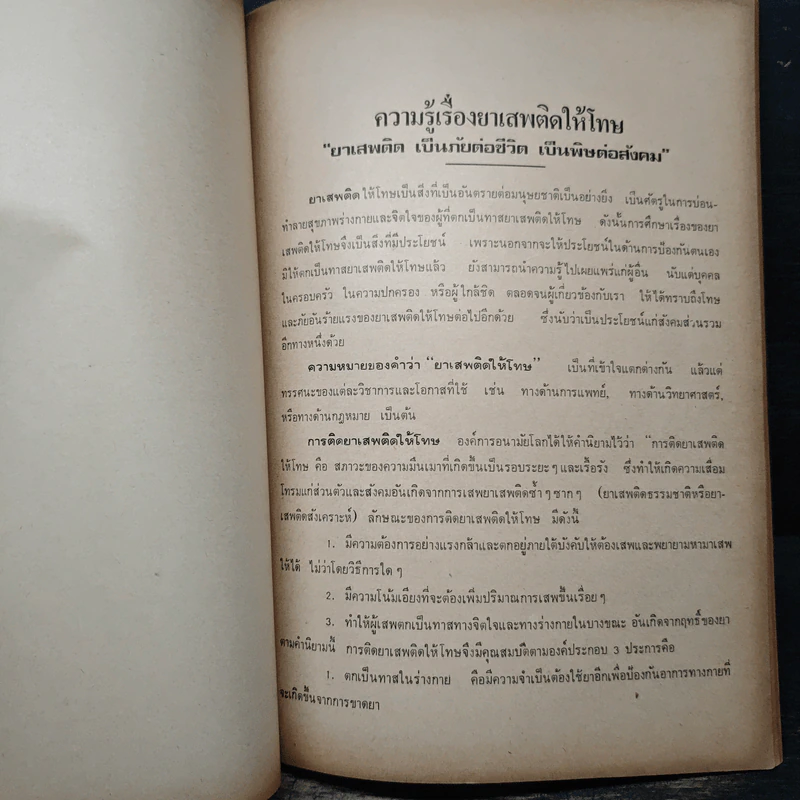 ความรู้เรื่องยาเสพติดให้โทษ
"ยาเสพติด เป็นภัยต่อชีวิต เป็นพิษต่อสังคม"
ยาเสพติด ให้โทษเป็นสิ่งที่เป็นอันตรายต่อมนุษยชาติเป็นอย่างยิ่ง เป็นศัตรูในการบ่อน-
ทำลายสุขภาพร่างกายและจิตใจของผู้ที่ตกเป็นทาสยาเสพติดให้โทษ ดังนั้นการศึกษาเรื่องของยา
เสพติดให้โทษจึงเป็นสิ่งที่มีประโยชน์ เพราะนอกจากจะให้ประโยชน์ในด้านการป้องกันตนเอง
มิให้ตกเป็นทาสยาเสพติดให้โทษแล้ว ยังสามารถนำความรู้ไปเผยแพร่แก่ผู้อื่น นับแต่บุคคล
ในครอบครัว ในความปกครอง หรือผู้ใกล้ชิด ตลอดจนผู้เกี่ยวข้องกับเรา ให้ได้ทราบถึงโทษ
และภัยอันร้ายแรงของยาเสพติดให้โทษต่อไปอีกด้วย ซึ่งนับว่าเป็นประโยชน์แก่สังคมส่วนรวม
อีกทางหนึ่งด้วย
ความหมายของคำว่า "ยาเสพติดให้โทษ" เป็นที่เข้าใจแตกต่างกัน แล้วแต่
ทรรศนะของแต่ละวิชาการและโอกาสที่ใช้ เช่น ทางด้านการแพทย์, ทางด้านวิทยาศาสตร์,
หรือทางด้านกฎหมาย เป็นต้น
การติดยาเสพติดให้โทษ องค์การอนามัยโลกได้ให้คำนิยามไว้ว่า "การติดยาเสพติด
ให้โทษ คือ สภาวะของความมึนเมาที่เกิดขึ้นเป็นรอบระยะๆ และเรื้อรัง ซึ่งทำให้เกิดความเสื่อม
โทรมแก่ส่วนตัวและสังคมอันเกิดจากการเสพยาเสพติดซ้ำๆ ซากๆ (ยาเสพติดธรรมชาติหรือยา-
เสพติดสังเคราะห์) ลักษณะของการติดยาเสพติดให้โทษ มีดังนี้
1. มีความต้องการอย่างแรงกล้าและตกอยู่ภายใต้บังคับให้ต้องเสพและพยายามหามาเสพ
ให้ได้ ไม่ว่าโดยวิธีการใดๆ
2. มีความโน้มเอียงที่จะต้องเพิ่มปริมาณการเสพขึ้นเรื่อยๆ
3. ทำให้ผู้เสพตกเป็นทาสทางจิตใจและทางร่างกายในบางขณะ อันเกิดจากฤทธิ์ของยา
ตามคำนิยามนี้ การติดยาเสพติดให้โทษจึงมีคุณสมบัติตามองค์ประกอบ 3 ประการคือ
1. ตกเป็นทาสในร่างกาย คือมีความจำเป็นต้องใช้ยาอีกเพื่อป้องกันอาการทางกายที่
จะเกิดขึ้นจากการขาดยา